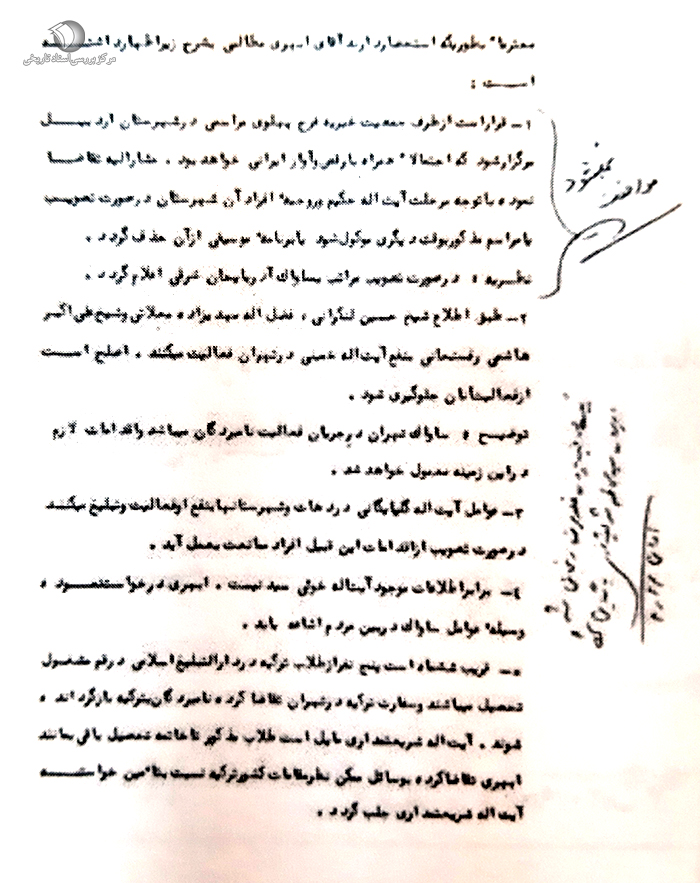 مرکز بررسی اسناد تاریخی
محترما" بطوریکه استحضار دارند آقای ابهری مطالبی بشرح زیر اظهار داشته
است :
۱- قرار است از طرف جمعیت خیریه فرح پهلوی مراسمی در شهرستان اردبیل
برگزار شود که احتمالا" همراه با رقص و آواز ایرانی خواهد بود . مشارالیه تقاضا
نموده با توجه برحلت آیت اله حکیم و روحیه افراد آن شهرستان در صورت تصویب
یا مراسم مذکور بوقت دیگری موکول شود یا برنامه موسیقی از آن حذف گردد .
نظریه : در صورت تصویب مراتب بساواک آذربایجان شرقی اعلام گردد .
۲- طبق اطلاع شیخ حسین لنکرانی ، فضل اله مهدیزاده محلاتی و شیخ علی اکبر
هاشمی رفسنجانی بنفع آیت اله خمینی در تهران فعالیت میکنند . اصلح است
از فعالیت آنان جلوگیری شود .
توضیح : ساواک تهران در جریان فعالیت نامبردگان میباشد و اقدامات لازم
در این زمینه معمول خواهد شد .
۳- عوامل آیت اله گلپایگانی در دهات و شهرستانها بنفع او فعالیت و تبلیغ میکنند
در صورت تصویب از اقدامات این قبیل افراد ممانعت بعمل آید .
۴- برابر اطلاعات موجود آیت اله خوئی سید نیست . ابهری درخواست نموده
وسیله عوامل ساواک در بین مردم اشاعه یابد .
۵- قریب ششماه است پنج نفر از طلاب ترکیه در دارالتبلیغ اسلامی در قم مشغول
تحصیل میباشند و سفارت ترکیه در تهران تقاضا کرده نامبردگان بترکیه بازگردانده
شوند . آیت اله شریعتمداری مایل است طلاب مذکور تا خاتمه تحصیل باقی بمانند
ابهری تقاضا کرده بوسائل ممکن نظر مقامات کشور ترکیه نسبت بتامین خواسته
آیت اله شریعتمداری جلب گردد .
موافقت نمیشود